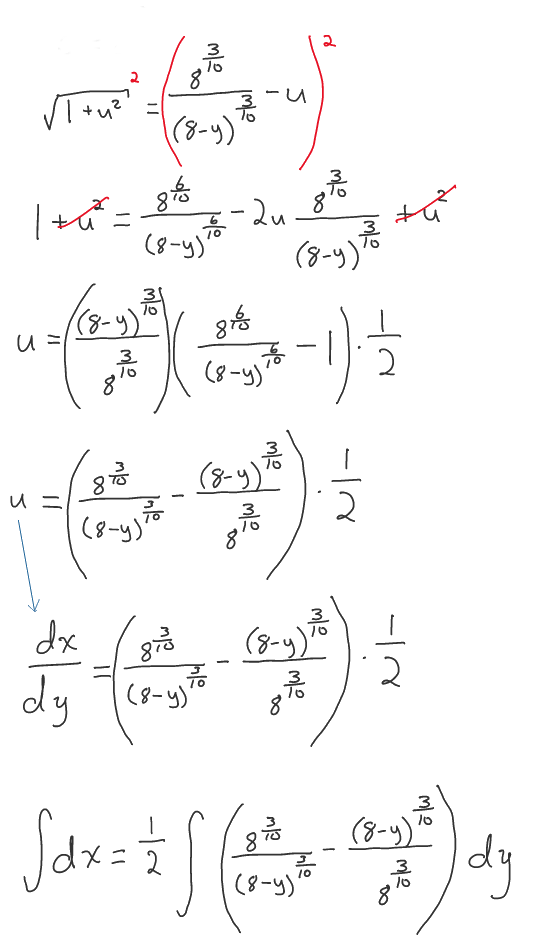 √(1+u²)² = (8^(3/10)/(8-y)^(3/10) - u)²
1 + u² = 8^(6/10)/(8-y)^(6/10) - 2u 8^(3/10)/(8-y)^(3/10) + u²
u = ((8-y)^(3/10)/8^(3/10)) (8^(6/10)/(8-y)^(6/10) - 1) · 1/2
u = (8^(3/10)/(8-y)^(3/10) - (8-y)^(3/10)/8^(3/10)) · 1/2
dx/dy = (8^(3/10)/(8-y)^(3/10) - (8-y)^(3/10)/8^(3/10)) · 1/2
∫dx = 1/2 ∫ (8^(3/10)/(8-y)^(3/10) - (8-y)^(3/10)/8^(3/10)) dy